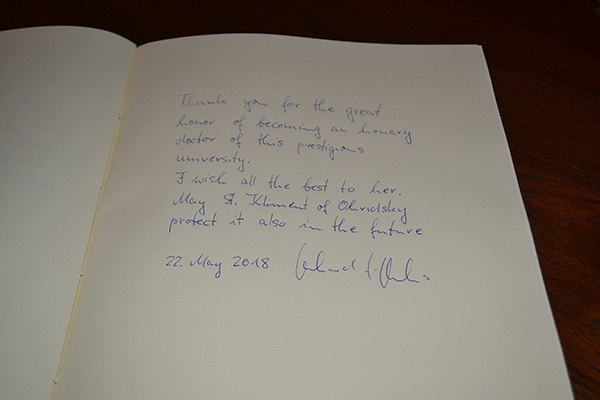 Thank you for the great
honor of becoming an honary
doctor of this prestigious
university.
I wish all the best to her.
May St. Kliment of Ohridsky
protect it also in the future
22. May 2018